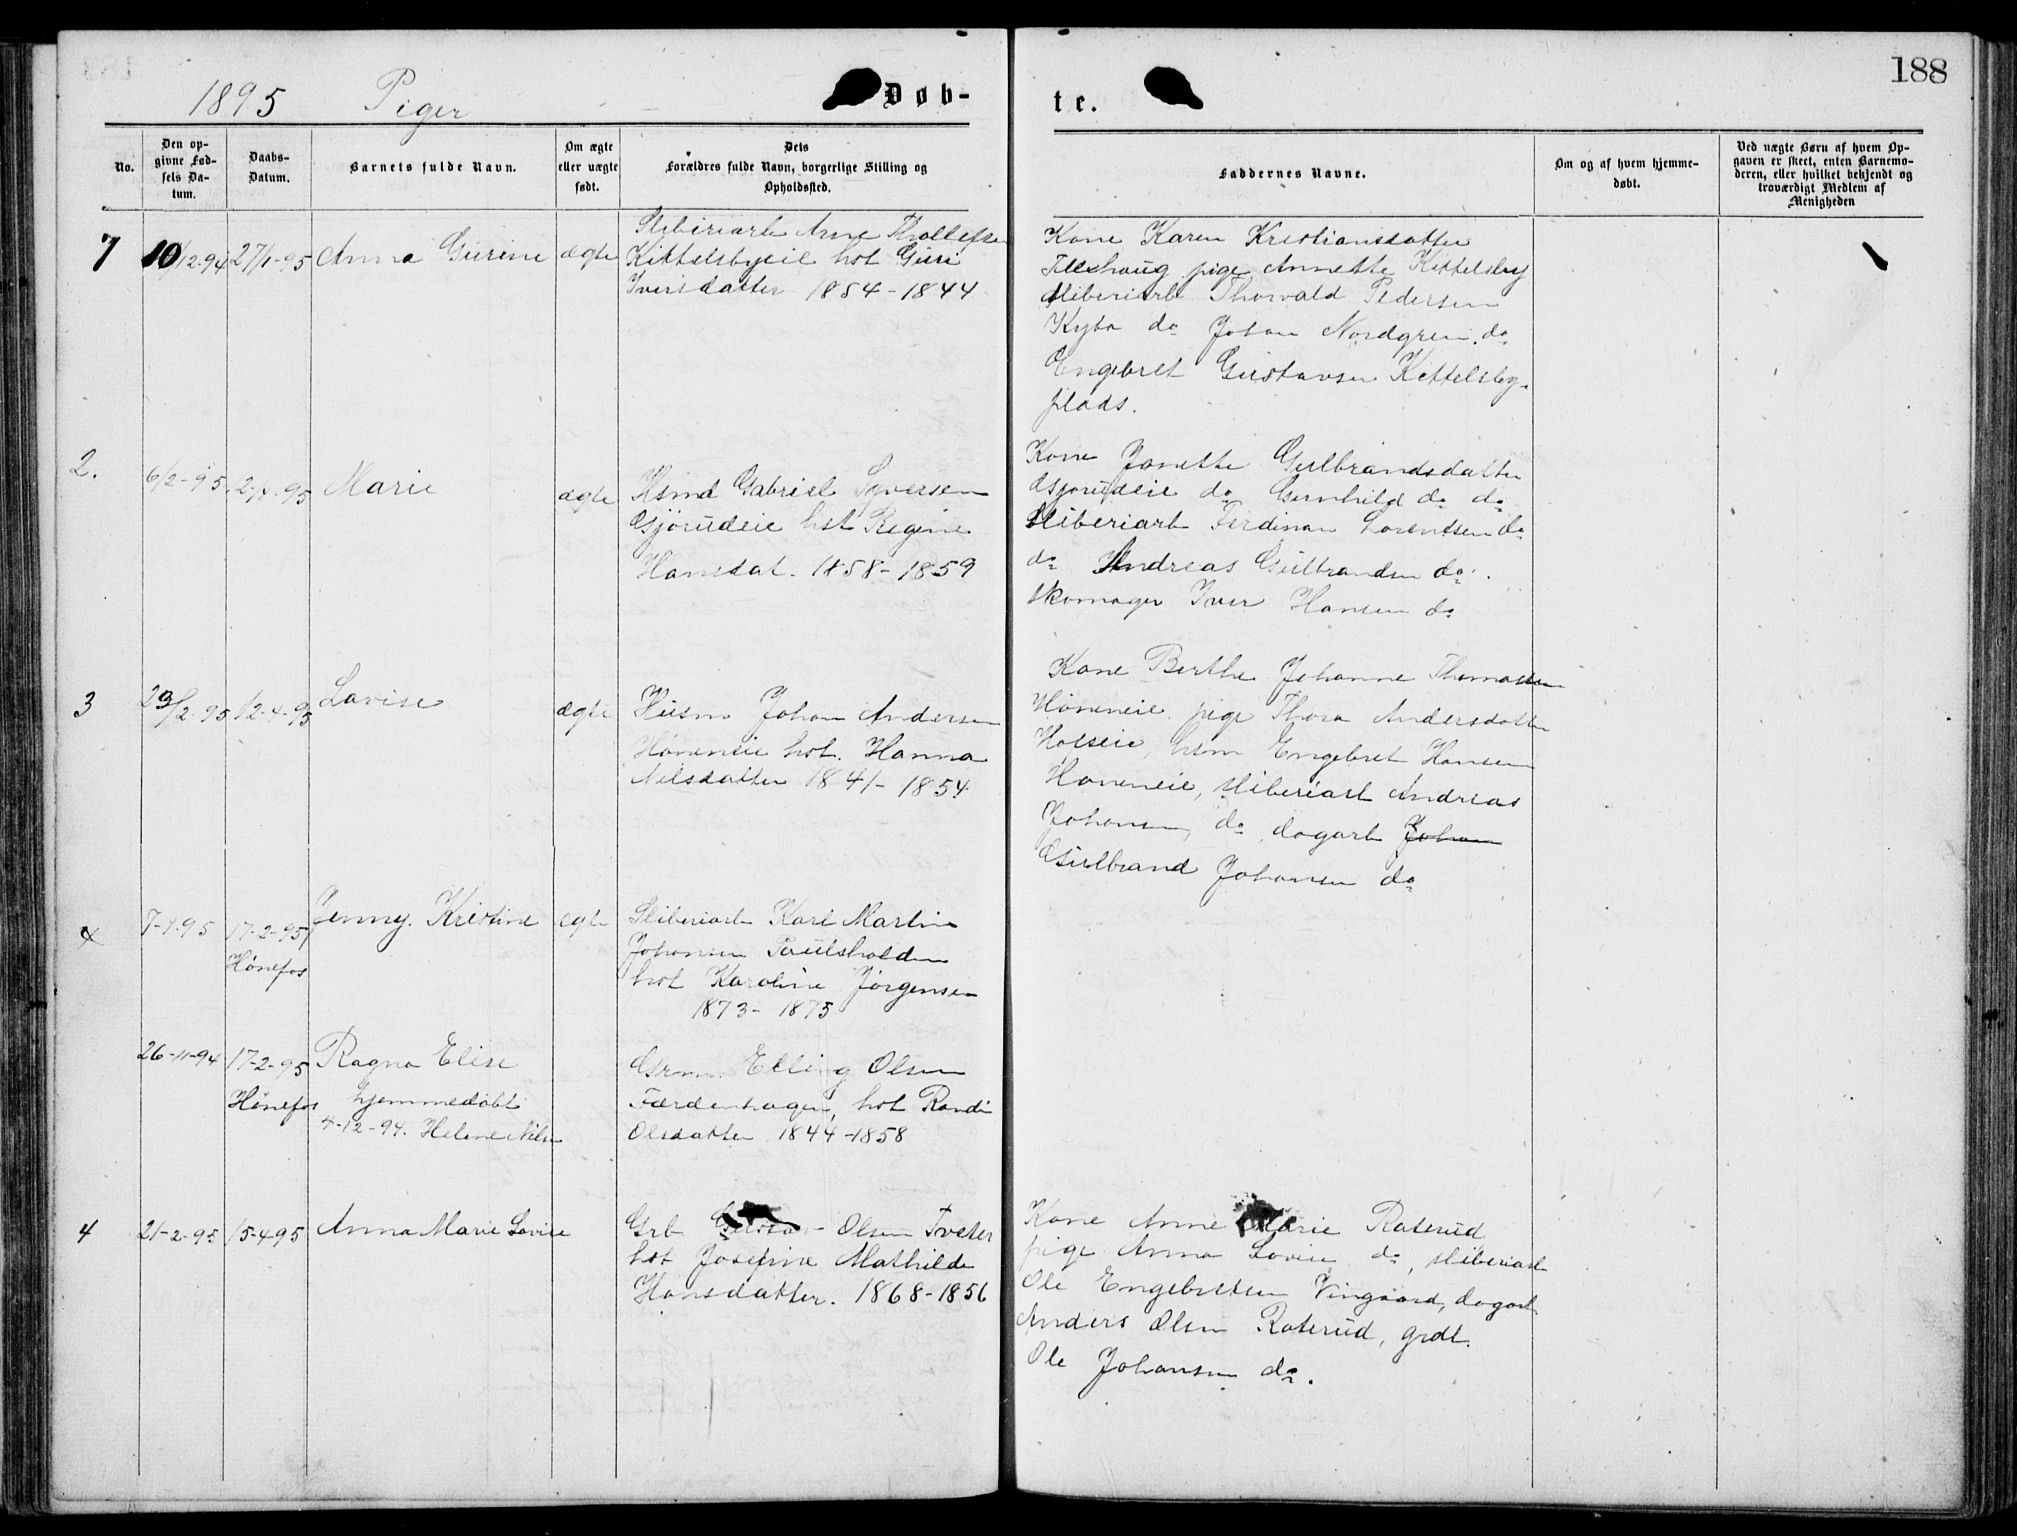 188
1895 Piger
Døb-
te.
No.
Den op-
givne Fød-
sels Da-
tum.
Daabs-
Datum.
Barnets fulde Navn.
Om ægte
eller uægte
født.
Dets
Forældres fulde Navn, borgerlige Stilling og
Opholdssted.
Faddernes Navne.
Om og af hvem hjemme-
døbt.
Ved uægte Børn af hvem Op-
gaven er skeet, enten Barnemo-
deren, eller hvilket bekjendt og
troværdigt Medlem af
Menigheden
10/12-94 27/1-95 Anna Gurine ægte
Sliberiarb Arne Thollefsen
Kittelsbyeie hst Guri
Iversdatter 1854-1844
Kone Karen Kristiansdatter
pige Annette Kittelsby
Sliberiarb Thorvald Pedersen
do Johan Nordgren do
Engebret Gustavsen Kittelsby-
plads.
2. 6/2-95 Marie ægte
Hsmd Gabriel Syversen
Gjørudeie hst Regine
Hansdat. 1858-1859
Kone Janette Gulbrandsdatter
Gjørudeie do Gunhild do do
Sliberiarb Ferdinan Lorentsen do
do Andreas Gulbrandsen do.
skomager Iver Hansen do
3 23/2-95 12-4-95 Lovise ægte
Husm Johan Andersen
Høneneie hst. Hanna
Nilsdatter 1841-1854
Kone Berthe Johanne Thomassen
Høneneie pige Thora Andersdatter
Holseie, hsm Engebret Hansen
Høneneie, sliberiarb Andreas
Johansen, do dagarb Johan
Gulbrand Johansen do
7-1-95 17-2-95 Jenny Kristine ægte
Hønefos
Sliberiarb Karl Martin
Johansen Paulsholden
hst Karoline Jørgensen
1873-1875
26-11-94 17-2-95 Ragna Elise
Hønefos hjemmedøbt
4-12-94. Helene Nilsen
Grm. Elling Olsen
Færdenhagen, hst Randi
Olsdatter 1844-1858
4 21-2-95 15-4 95 Anna Marie Lovise
Grb Gustav Olsen Tveter
hst Josefine Mathilde
Hansdatter. 1868-1856
Kone Anne Marie Raterud
pige Anna Lovise do, sliberiarb
Ole Engebretsen Vingaard, dagarb
Anders Olsen Raterud, grdt.
Ole Johansen do.